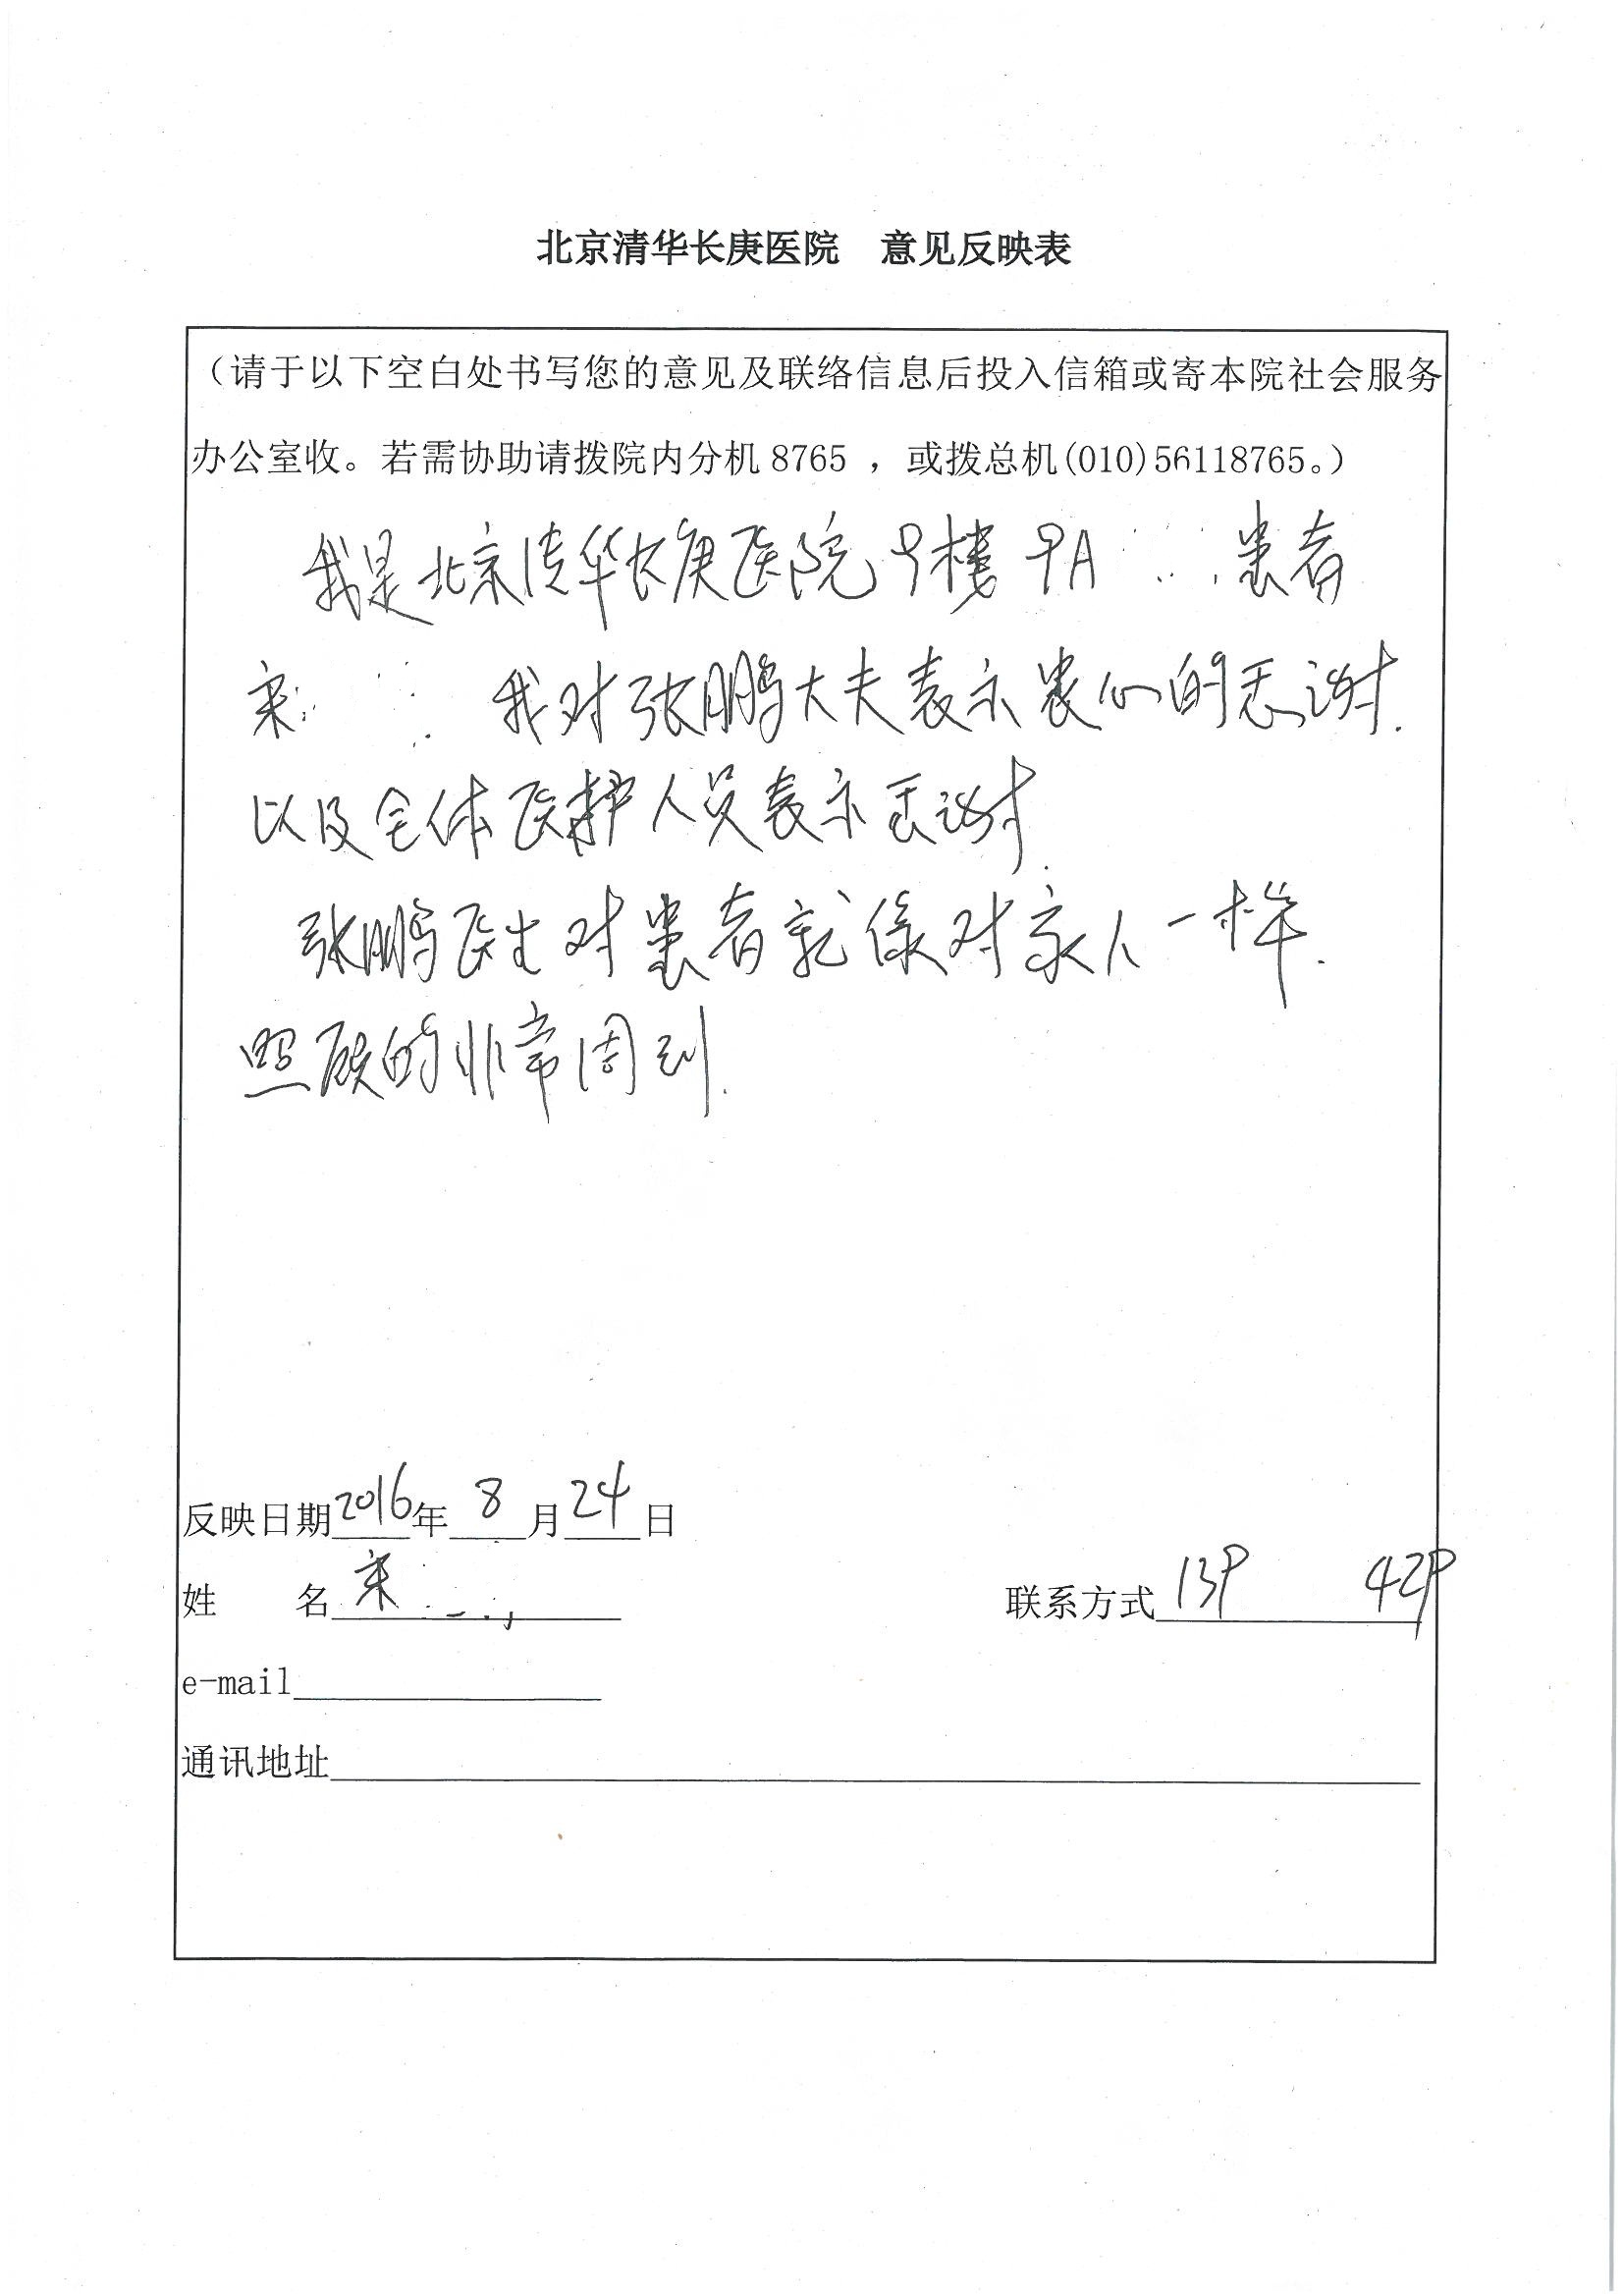 北京清华长庚医院 意见反映表
（请于以下空白处书写您的意见及联络信息后投入信箱或寄本院社会服务
办公室收。若需协助请拨院内分机 8765 ，或拨总机(010)56118765。）
我是北京清华长庚医院9楼9A 患者
宋 我对张鹏大夫表示衷心的感谢.
以及全体医护人员表示感谢.
张鹏医生对患者就像对家人一样.
照顾的非常周到.
反映日期2016年 8 月24日
姓 名 宋 联系方式 139 429
e-mail
通讯地址